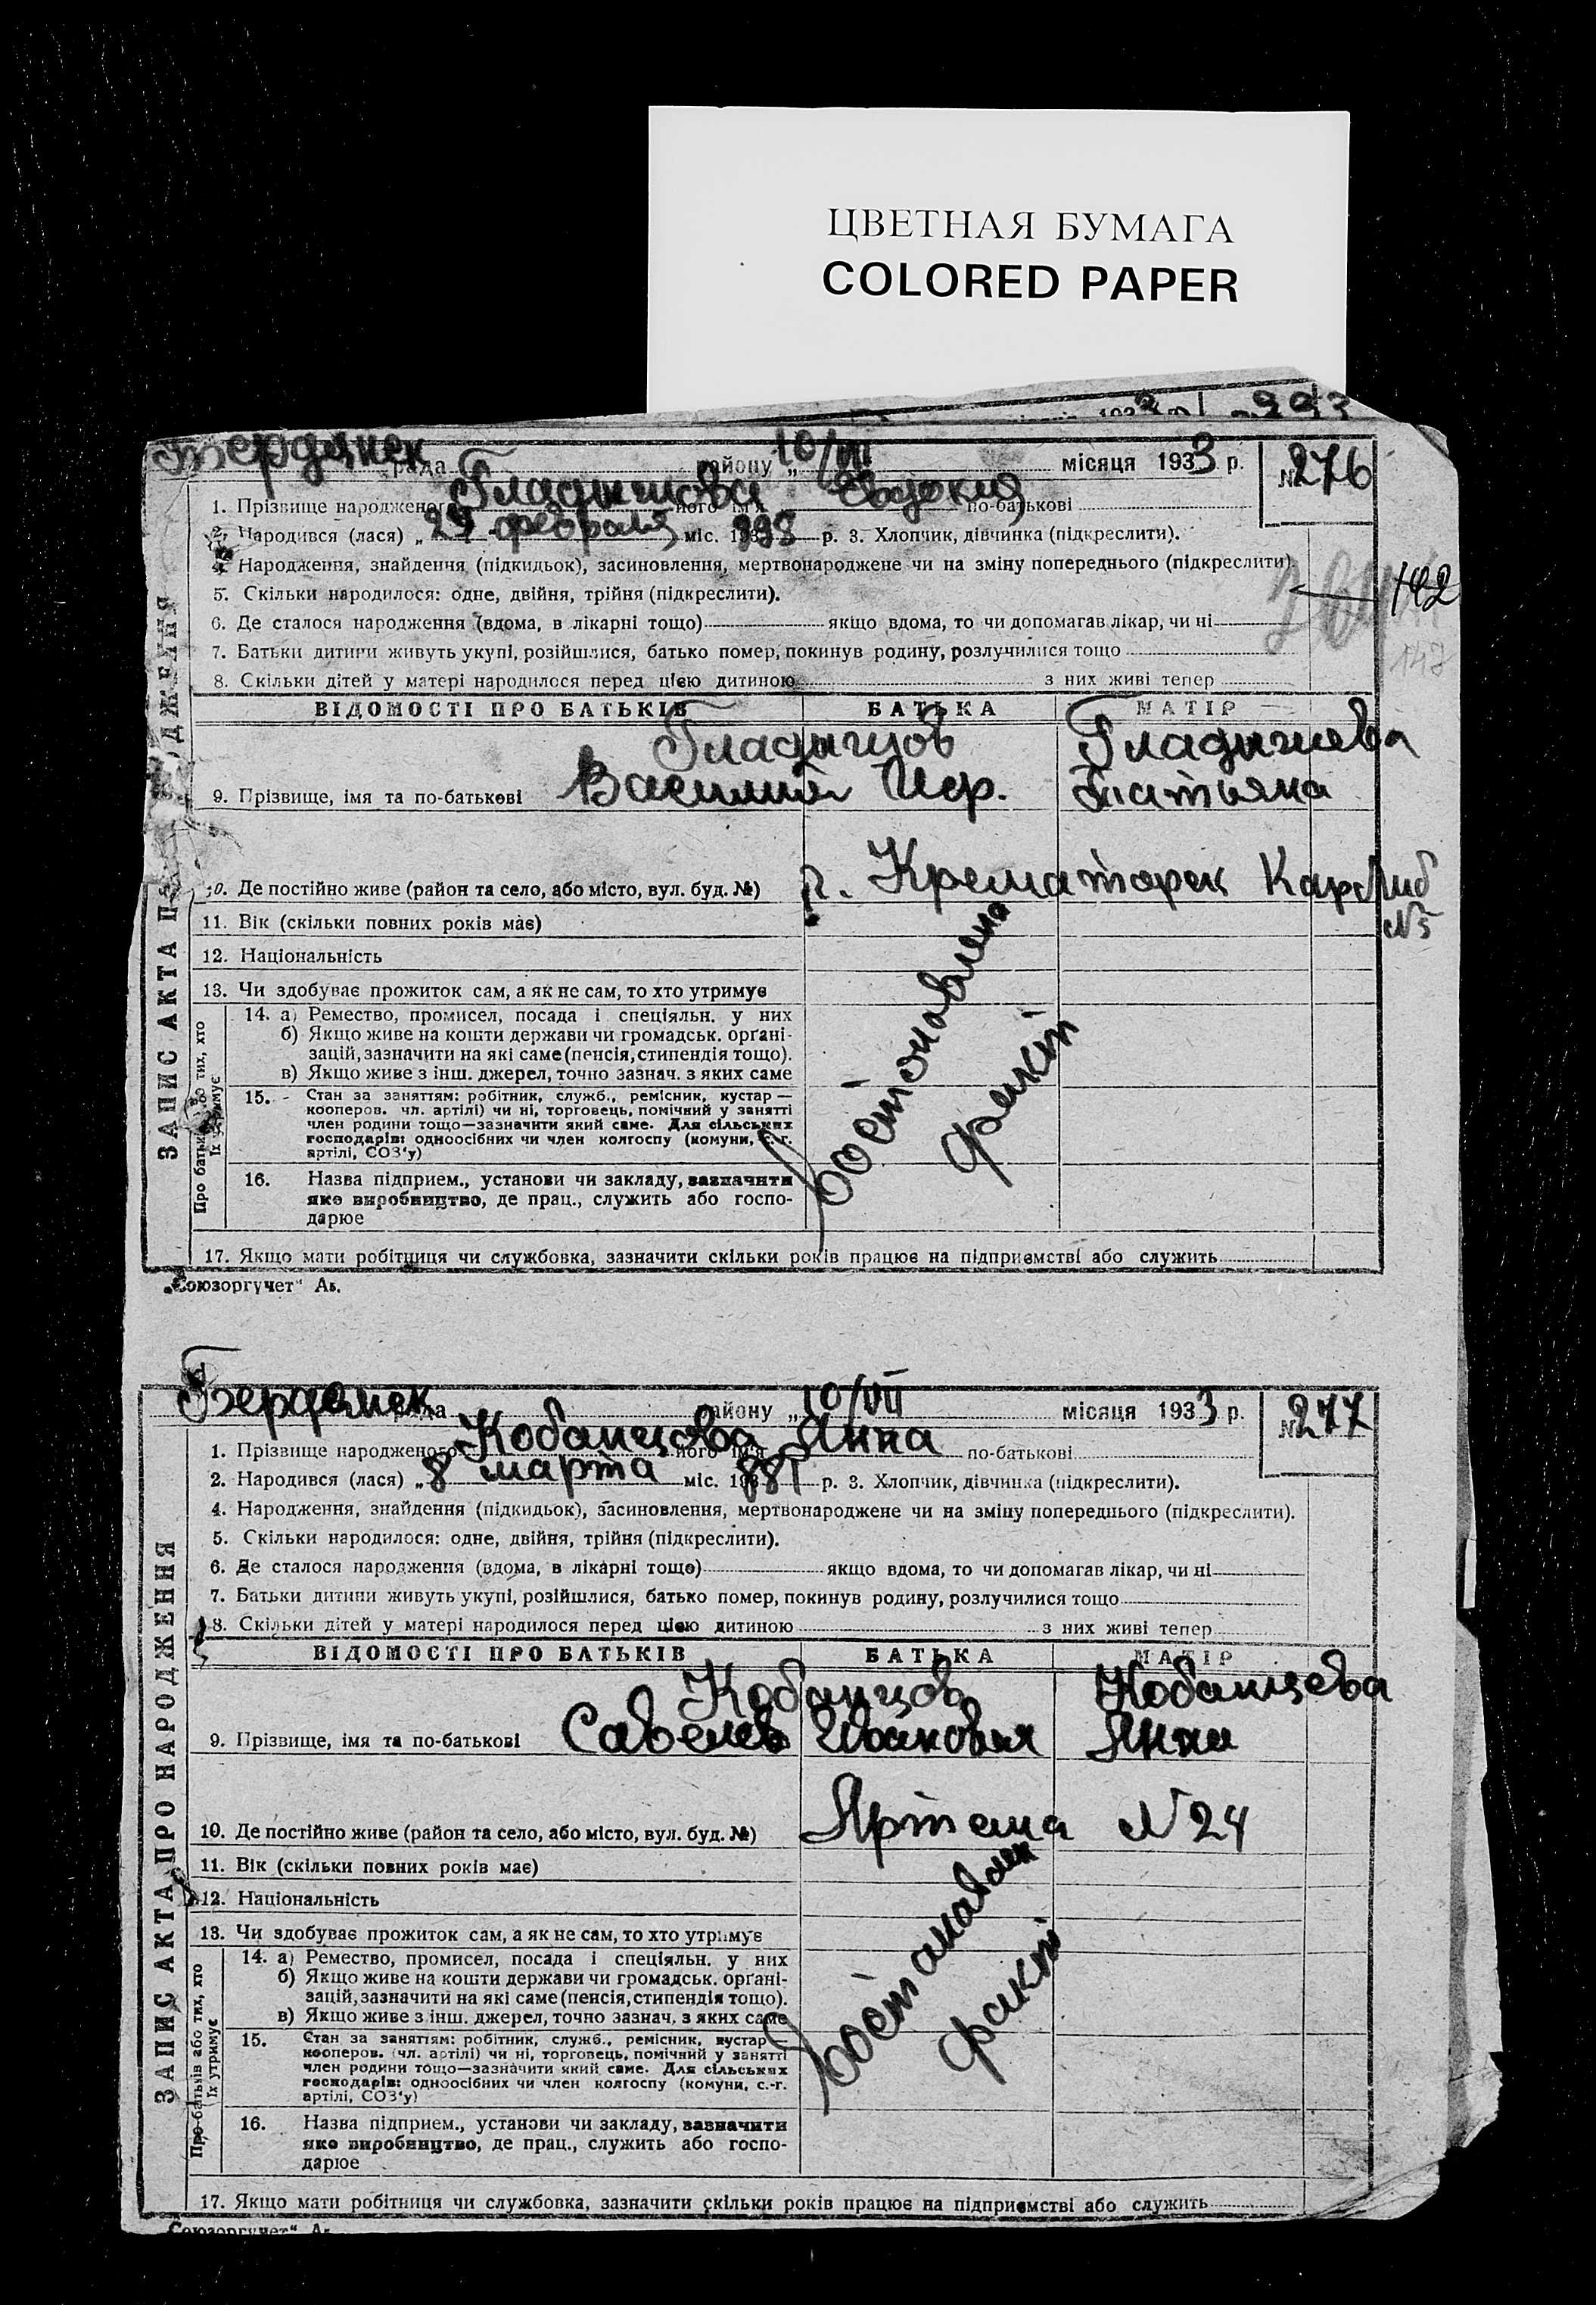 ЦВЕТНАЯ БУМАГА
COLORED PAPER
Бердянск рада району „10/VII місяця 1933 р. № 276
1. Прізвище народженого його ім'я Евдокия по-батькові
2. Народився (лася) „29 февраля міс. 898 р. 3. Хлопчик, дівчинка (підкреслити).
4. Народження, знайдення (підкидьок), засиновлення, мертвонароджене чи на зміну попереднього (підкреслити)
5. Скільки народилося: одне, двійня, трійня (підкреслити).
142
6. Де сталося народження (вдома, в лікарні тощо) якщо вдома, то чи допомагав лікар, чи ні
7. Батьки дитини живуть укупі, розійшлися, батько помер, покинув родину, розлучилися тощо
8. Скільки дітей у матері народилося перед цією дитиною з них живі тепер
ВІДОМОСТІ ПРО БАТЬКІВ БАТЬКА МАТІР
9. Прізвище, імя та по-батькові Василий Татьяна
10. Де постійно живе (район та село, або місто, вул. буд. №) г. Краматорск Кар Либ
№5
11. Вік (скільки повних років має)
12. Національність
13. Чи здобуває прожиток сам, а як не сам, то хто утримує
14. а) Ремество, промисел, посада і спеціяльн. у них
б) Якщо живе на кошти держави чи громадськ. орґані-
зацій, зазначити на які саме (пенсія, стипендія тощо).
в) Якщо живе з інш. джерел, точно зазнач. з яких саме
15. Стан за заняттям: робітник, служб., ремісник, кустар —
кооперов. чл. артілі) чи ні, торговець, помічний у занятті
член родини тощо—зазначити який саме. Для сільських
господарів: одноосібних чи член колгоспу (комуни, с.-г.
артілі, СОЗ'у)
16. Назва підприєм., установи чи закладу, зазначити
яке виробництво, де прац., служить або госпо-
дарює
17. Якщо мати робітниця чи службовка, зазначити скільки років працює на підприємстві або служить
ЗАПИС АКТА
„Союзоргучет"
Бердянск рада району „10/VII місяця 1933 р. № 277
1. Прізвище народженого Кобанцова його ім'я Анна по-батькові
2. Народився (лася) „8 марта міс. 881 р. 3. Хлопчик, дівчинка (підкреслити).
4. Народження, знайдення (підкидьок), засиновлення, мертвонароджене чи на зміну попереднього (підкреслити).
5. Скільки народилося: одне, двійня, трійня (підкреслити).
6. Де сталося народження (вдома, в лікарні тощо) якщо вдома, то чи допомагав лікар, чи ні
7. Батьки дитини живуть укупі, розійшлися, батько помер, покинув родину, розлучилися тощо
8. Скільки дітей у матері народилося перед цією дитиною з них живі тепер
ВІДОМОСТІ ПРО БАТЬКІВ БАТЬКА МАТІР
Кобанцов Кобанцева
9. Прізвище, імя та по-батькові Савелев Анна
10. Де постійно живе (район та село, або місто, вул. буд. №) Артема №24
11. Вік (скільки повних років має)
12. Національність
13. Чи здобуває прожиток сам, а як не сам, то хто утримує
14. а) Ремество, промисел, посада і спеціяльн. у них
б) Якщо живе на кошти держави чи громадськ. орґані-
зацій, зазначити на які саме (пенсія, стипендія тощо).
в) Якщо живе з інш. джерел, точно зазнач. з яких саме
15. Стан за заняттям: робітник, служб., ремісник, кустар —
кооперов. (чл. артілі) чи ні, торговець, помічний у занятті
член родини тощо—зазначити який саме. Для сільських
господарів: одноосібних чи член колгоспу (комуни, с.-г.
артілі, СОЗ'у)
16. Назва підприєм., установи чи закладу, зазначити
яке виробництво, де прац., служить або госпо-
дарює
17. Якщо мати робітниця чи службовка, зазначити скільки років працює на підприємстві або служить
ЗАПИС АКТА ПРО НАРОДЖЕННЯ
Про батьків або тих, хто
їх утримує
„Союзоргучет"